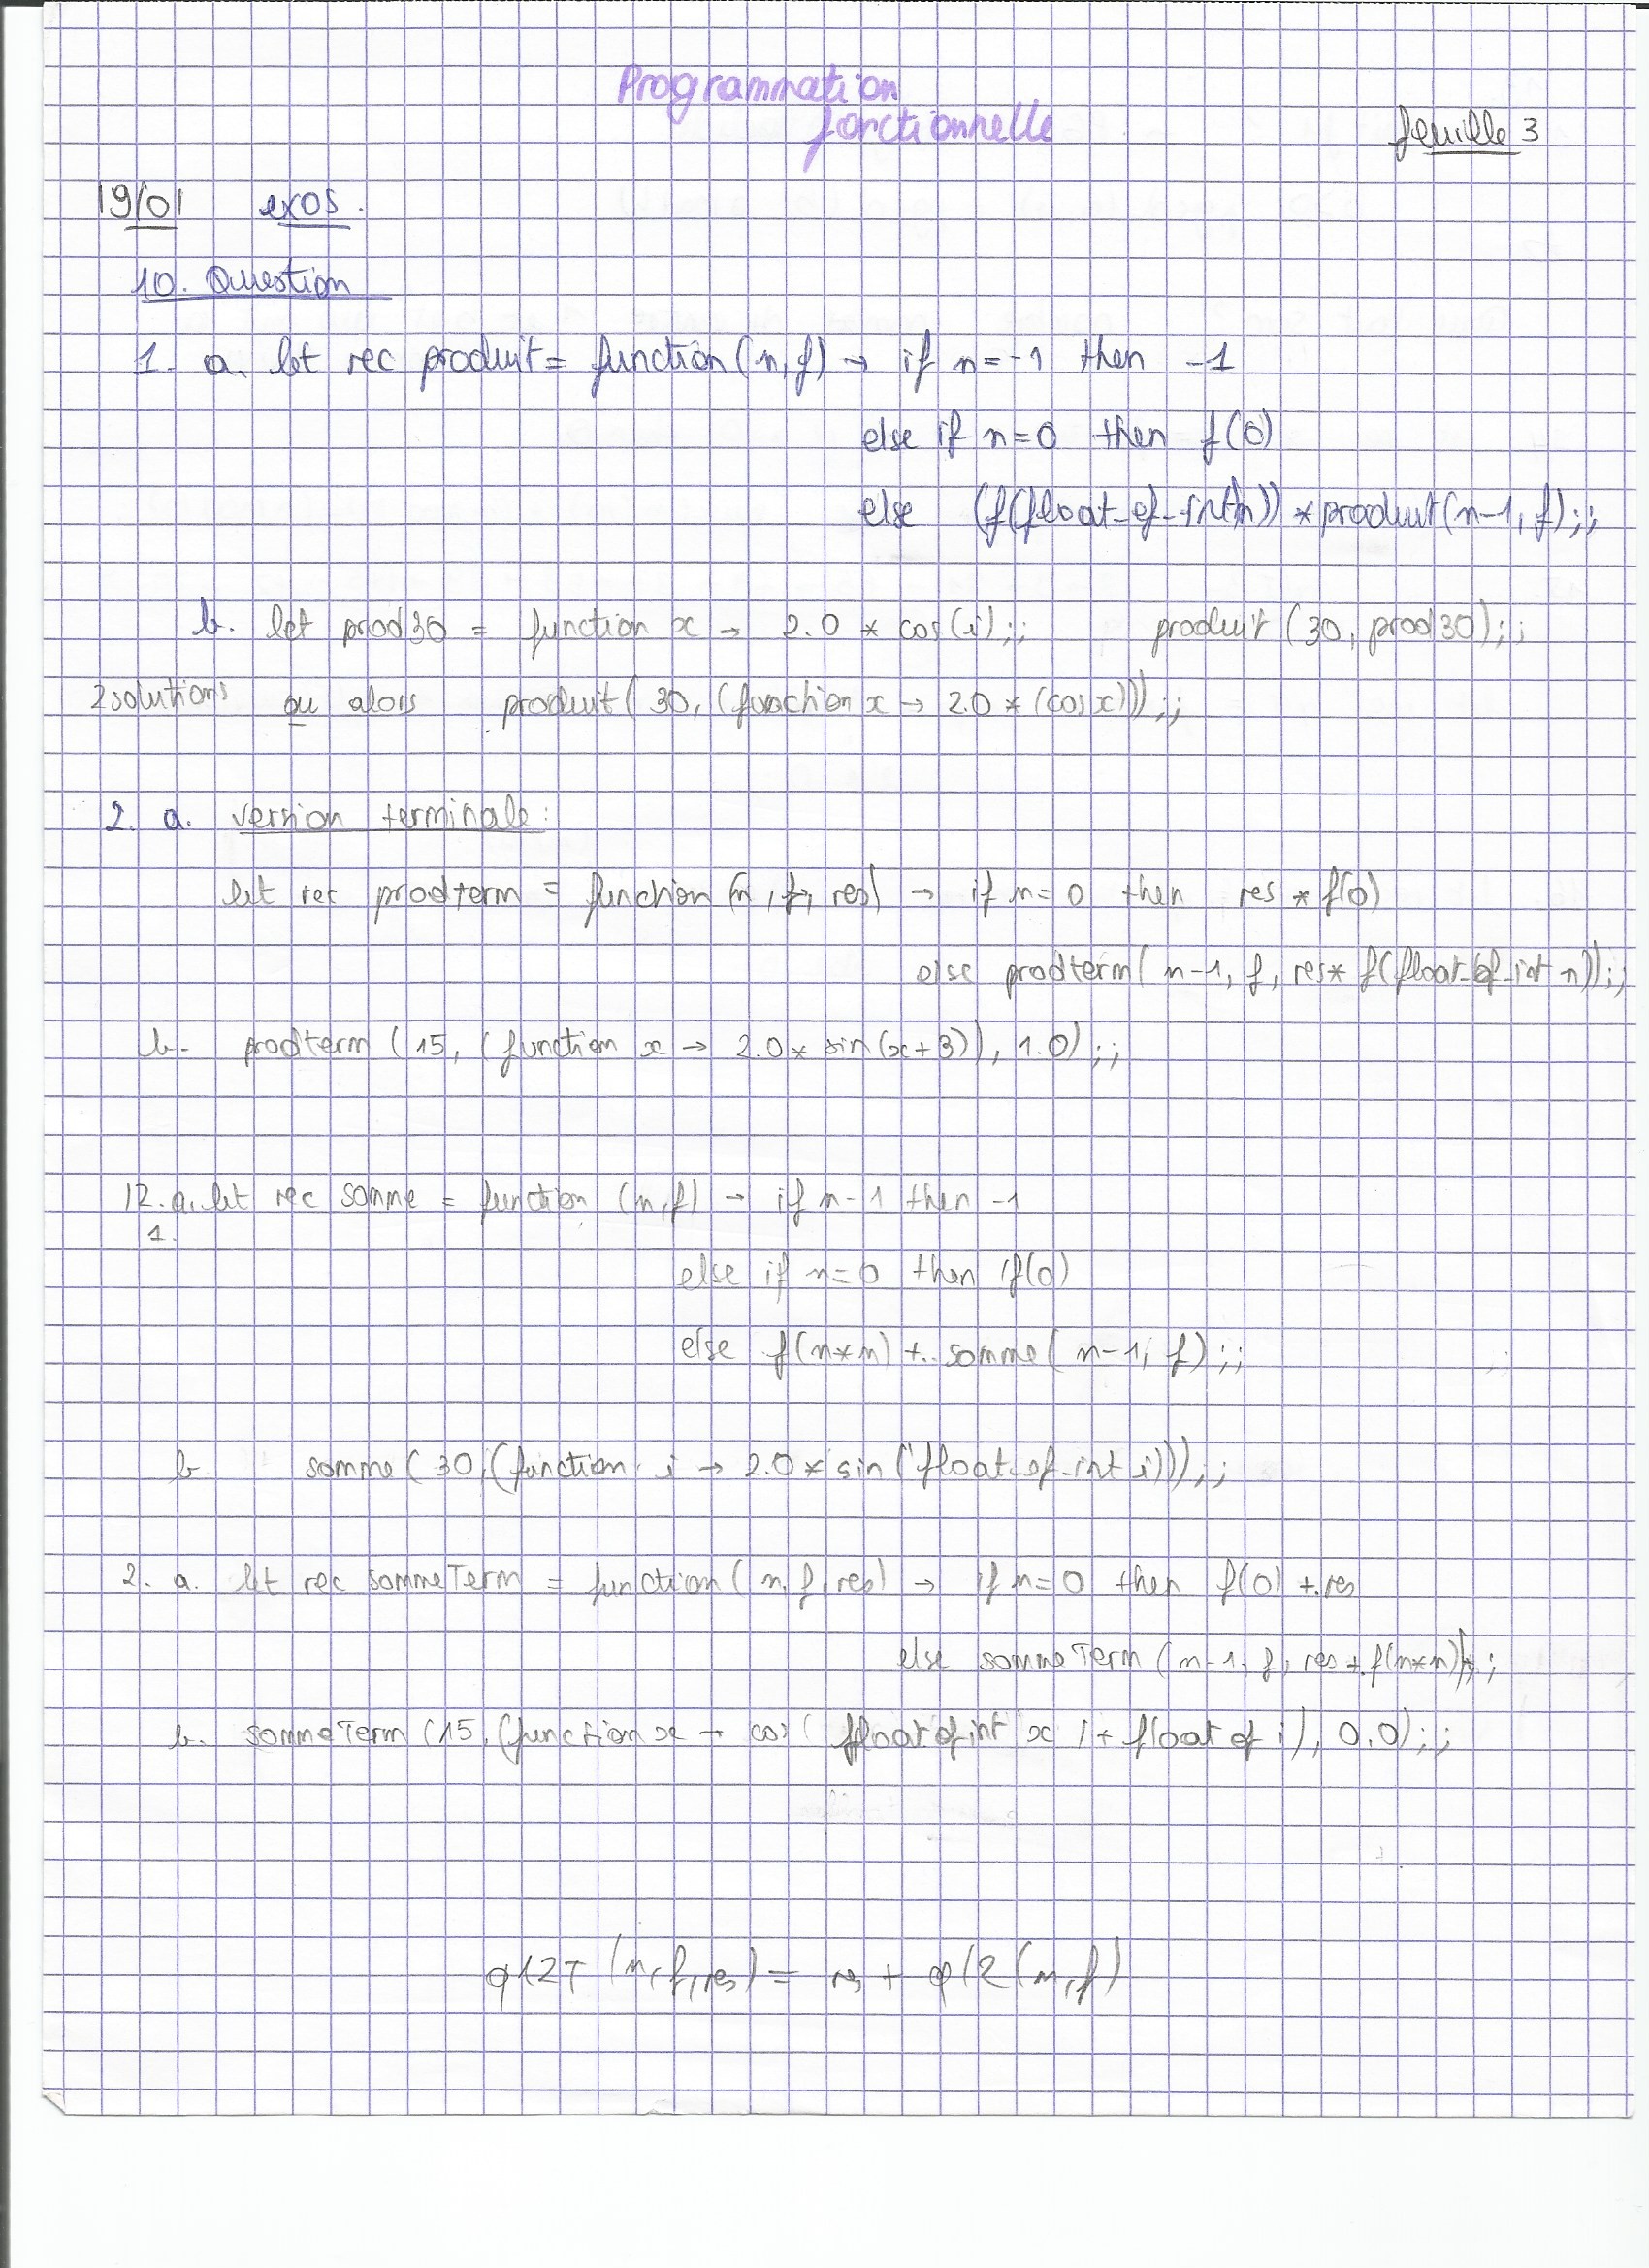 Programmation
fonctionnelle
feuille 3
19/01 exos.
10. Question
1. a. let rec produit = function (n, f) → if n = -1 then -1
else if n = 0 then f(0)
else (f(float_of_int n)) * produit(n-1, f);;
b. let prod30 = function x → 2.0 * cos(i);; produit (30, prod30);;
2 solutions ou alors produit( 30, (function x → 2.0 * (cos x)));;
2. a. version terminale :
let rec prodterm = function (n, f, res) → if n = 0 then res * f(0)
else prodterm( n-1, f, res * f(float_of_int n));;
b- prodterm (15, (function x → 2.0 * sin(x+3)), 1.0);;
12. a. let rec somme = function (n, f) → if n - 1 then -1
1.
else if n = 0 then f(0)
else f(n*n) +. somme( n-1, f);;
b. somme( 30, (function i → 2.0 * sin(float_of_int i)));;
2. a. let rec sommeTerm = function( n, f, res) → if n = 0 then f(0) +. res
else sommeTerm (n-1, f, res +. f(n*n));;
b. sommeTerm (15, (function x → cos( float of int x ) + float of i), 0.0);;
q12T (n, f, res) = res + q12 (n, f)